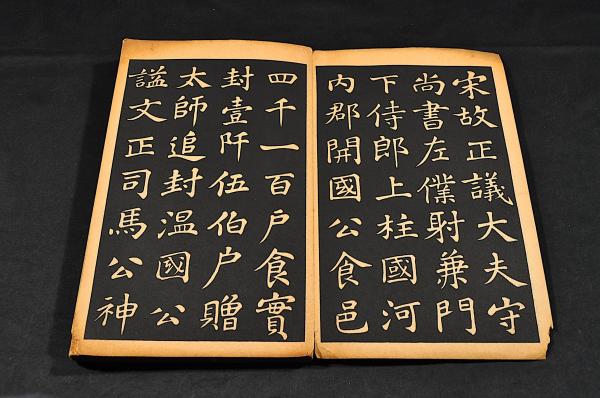 宋故正議大夫守
尚書左僕射兼門
下侍郎上柱國河
内郡開國公食邑
四千一百户食實
封壹阡伍伯户贈
太師追封溫國公
謚文正司馬公神